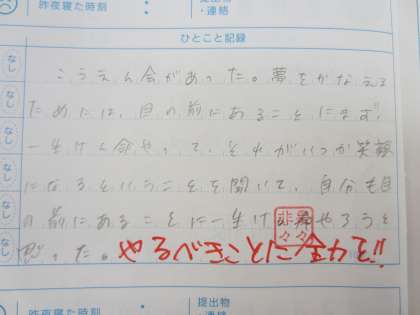 昨夜寝た時刻
提出物
・連絡
ひとこと記録
なし
なし
なし
なし
なし
こうえん会があった。夢をかなえる
ためには、目の前にあることにまず、
一生けん命やって、それがいつか笑顔
になるということを聞いて、自分も目
の前にあることに一生けん命やろうと
思った。やるべきことに全力を!!
昨夜寝た時刻
提出物
・連絡